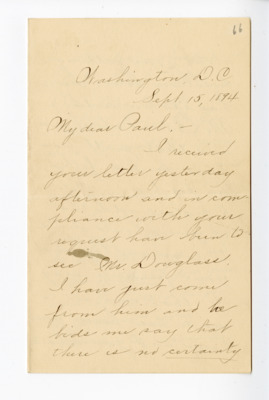 66
Washington, D.C.
Sept. 15, 1894
My dear Paul, -
I received
your letter yesterday
afternoon and in com
pliance with your
request have been to
see Mr. Douglass.
I have just come
from him and he
bids me say that
there is no certainty